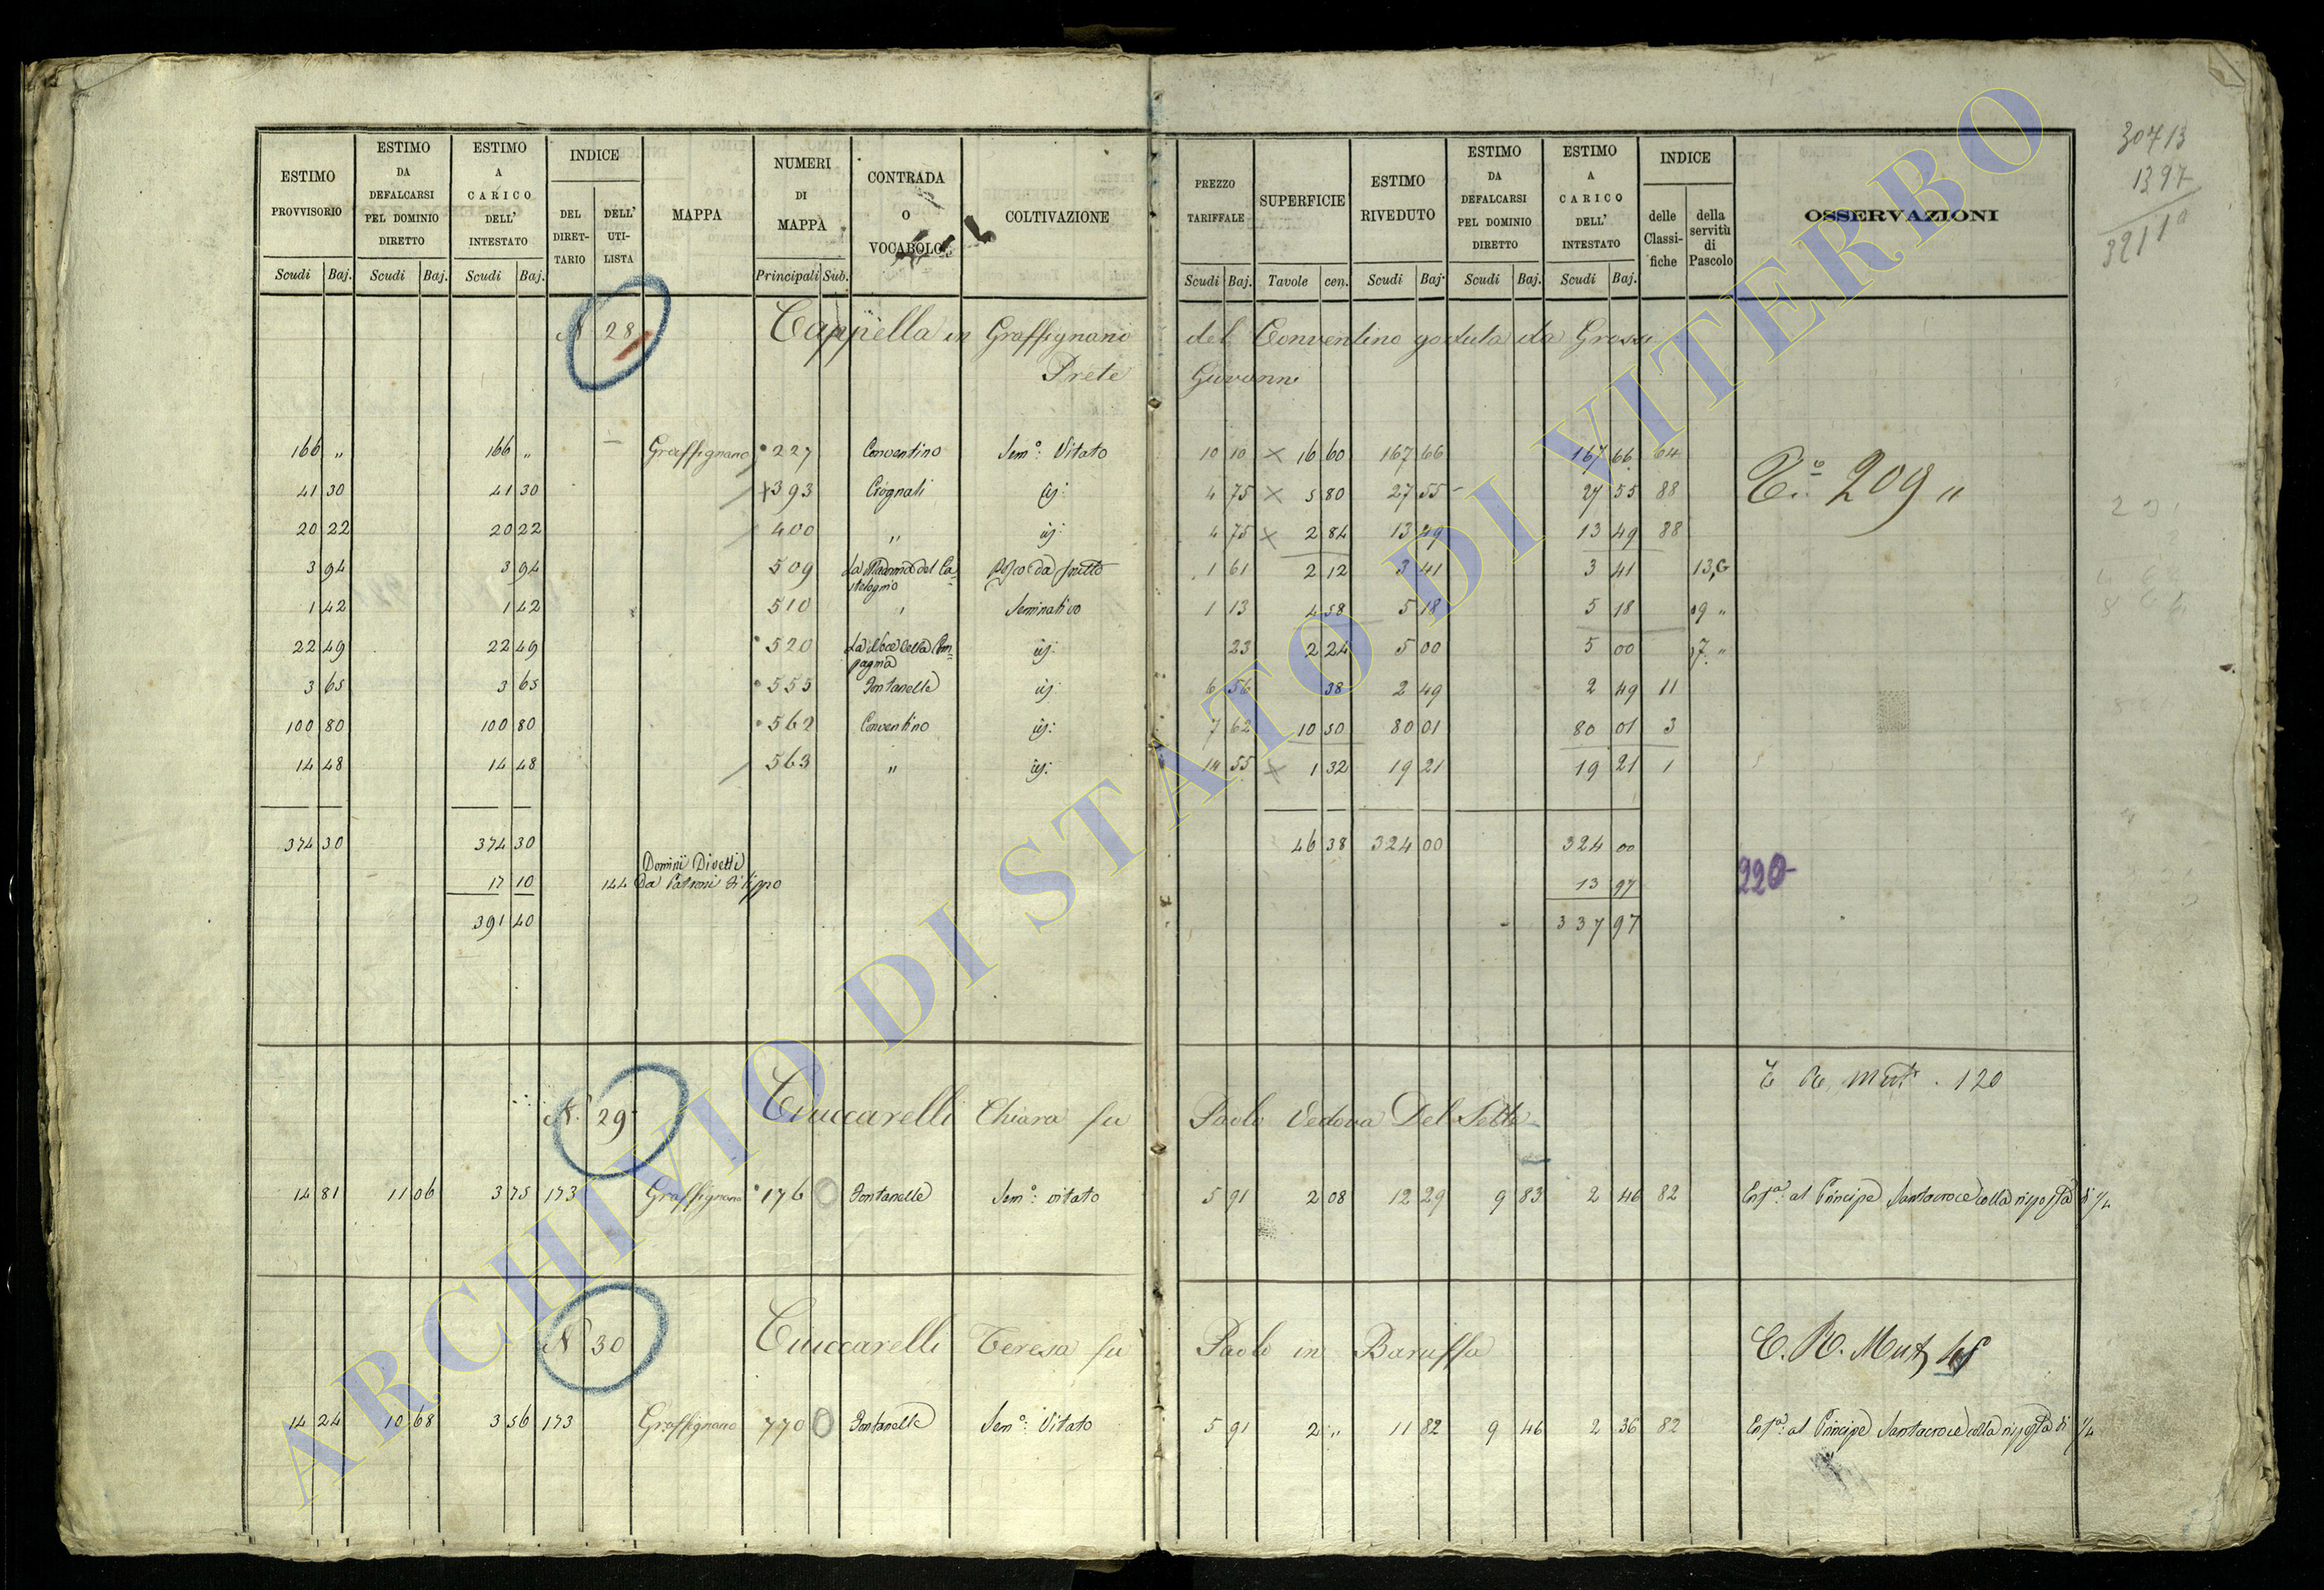 ESTIMO PROVVISORIO Scudi Baj. ESTIMO DA DEFALCARSI PEL DOMINIO DIRETTO Scudi Baj. ESTIMO A CARICO DELL' INTESTATO Scudi Baj. INDICE DEL DIRETTARIO DELL' UTILISTA MAPPA NUMERI DI MAPPA Principali Sub. CONTRADA O VOCABOLO COLTIVAZIONE PREZZO TARIFFALE Scudi Baj. SUPERFICIE Tavole cen. ESTIMO RIVEDUTO Scudi Baj. ESTIMO DA DEFALCARSI PEL DOMINIO DIRETTO Scudi Baj. ESTIMO A CARICO DELL' INTESTATO Scudi Baj. INDICE delle Classifiche della servitù di Pascolo OSSERVAZIONI
30713
1397
N 28 Cappella in Graffignano del Conventino goduta da Grossi
Prete Giovanni
166 „ 166 „ — Graffignano 227 Conventino Sem°: Vitato 10 10 × 16 60 167 66 167 66 64
41 30 41 30 393 Crognali id: 4 75 × 5 80 27 55 27 55 88 209 „
20 22 20 22 400 „ id: 4 75 × 2 84 13 49 13 49 88
3 94 3 94 509 La Madonna del Ca= 1 61 2 12 3 41 3 41 13,G
1 42 1 42 510 „ Seminativo 1 13 4 58 5 18 5 18 19 „
22 49 22 49 520 La Noce della Com= id: 23 2 24 5 00 5 00 17 „
pagnia
3 65 3 65 555 Fontanelle id: 6 56 38 2 49 2 49 11
100 80 100 80 562 Conventino id: 7 62 10 50 80 01 80 01 3
14 48 14 48 563 „ id: 14 55 × 1 32 19 21 19 21 1
374 30 374 30 46 38 324 00 324 00
Dominii Diretti
17 10 144 Da Patroni Filippo 13 97 220
391 40 337 97
E R. Mut. 120
N. 29 Ciuccarelli Chiara fu Paolo Vedova Del Sette
14 81 11 06 3 75 173 Graffignano 176 Fontanelle Sem°: vitato 5 91 2 08 12 29 9 83 2 46 82 Enfa: al Principe Santacroce colla risposta di 1/4
N 30 Ciuccarelli Teresa fu Paolo in Baruffa E. R. Mut.
14 24 10 68 3 56 173 Graffignano 770 Fontanelle Sem°: Vitato 5 91 2 „ 11 82 9 46 2 36 82 Enfa: al Principe Santacroce colla risposta di 1/4
ARCHIVIO DI STATO DI VITERBO